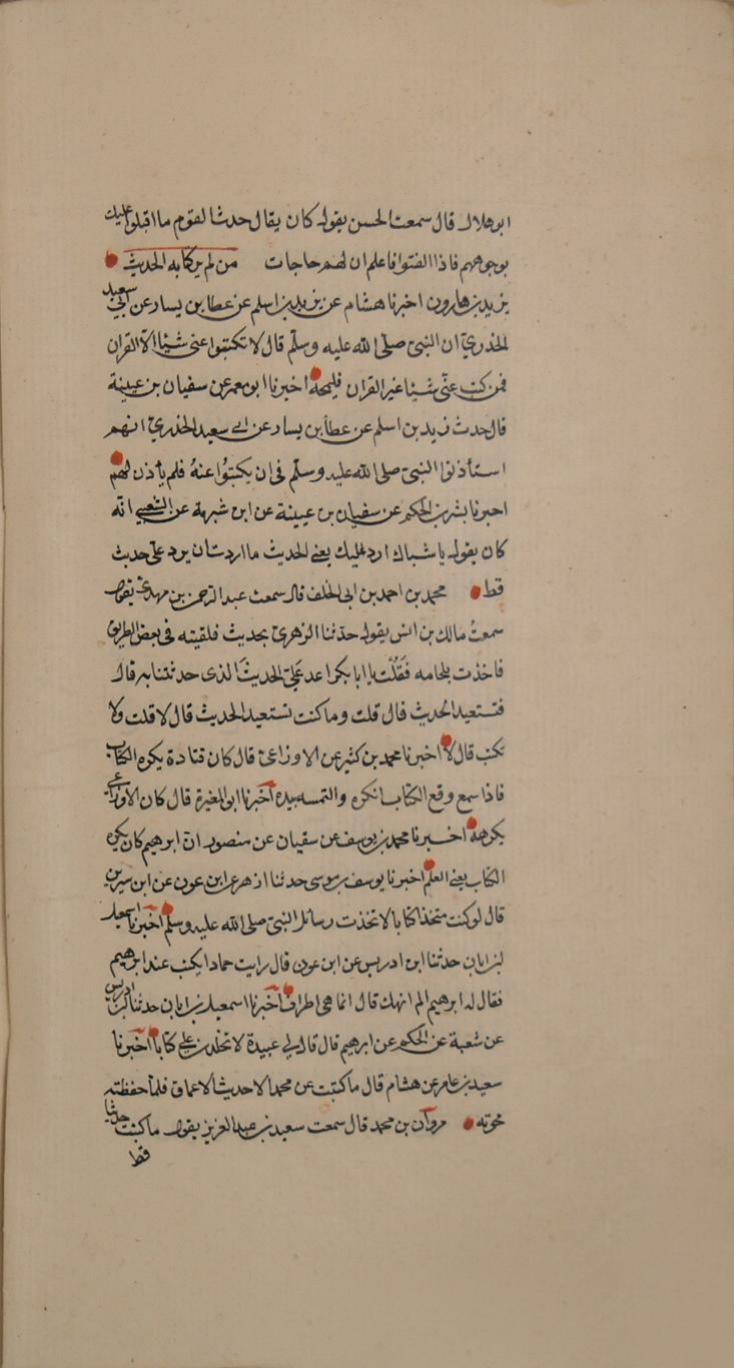 ابو هلال قال سمعت الحسن يقول كان يقال حدث القوم ما اقبلوا عليك
بوجوههم فاذا التفتوا فاعلم ان لهم حاجات من لم ير كتابه الحديث
يزيد بن هارون اخبرنا هشام عن زيد بن اسلم عن عطا بن يسار عن ابي سعيد
الخذري ان النبي صلى الله عليه وسلم قال لا تكتبوا عني شيئا الا القران
فمن كتب عني شيئا غير القران فليمحه اخبرنا ابو معمر عن سفيان بن عيينة
قال حدث زيد بن اسلم عن عطا بن يسار عن ابي سعيد الخذري انهم
استأذنوا النبي صلى الله عليه وسلم في ان يكتبوا عنه فلم يأذن لهم
اخبرنا بشر بن الحكم عن سفيان بن عيينة عن ابن شبرمة عن الشعبي انه
كان يقول يا شباك ارد عليك يعني الحديث ما اردت ان يرد علي حديث
قط محمد بن احمد بن ابي الخلف قال سمعت عبد الرحمن بن مهدي يقول
سمعت مالك بن انس يقول حدثنا الزهري بحديث فلقيته في بعض الطريق
فاخذت بلجامه فقلت يا ابا بكر اعد علي الحديث الذي حدثتنا به قال
فتستعيد الحديث قال قلت وما كنت تستعيد الحديث قال لا قلت ولا
تكتب قال لا اخبرنا محمد بن كثير عن الاوزاعي قال كان قتادة يكره الكتاب
فاذا سمع وقع الكتاب انكره والتمسه بيده اخبرنا ابو المغيرة قال كان الاوزاعي
يكرهه اخبرنا محمد بن يوسف عن سفيان عن منصور ان ابرهيم كان يكره
الكتاب يعني العلم اخبرنا يوسف بن موسى حدثنا ازهر عن ابن عون عن ابن سيرين
قال لو كنت متخذا كتابا لاتخذت رسائل النبي صلى الله عليه وسلم اخبرنا اسمعيل
بن ابان حدثنا ابن ادريس عن ابن عون قال رايت حمادا يكتب عند ابرهيم
فقال له ابرهيم الم انهك قال انما هي اطراف اخبرنا اسمعيل بن ابان حدثنا ابن ادريس
عن شعبة عن الحكم عن ابرهيم قال قال لي عبيدة لا تخلدن علي كتابا اخبرنا
سعيد بن عامر عن هشام قال ما كتبت عن محمد الا حديث الاعماق فلما حفظته
محوته مروان بن محمد قال سمعت سعيد بن عبد العزيز يقول ما كتبت حديثا
قط